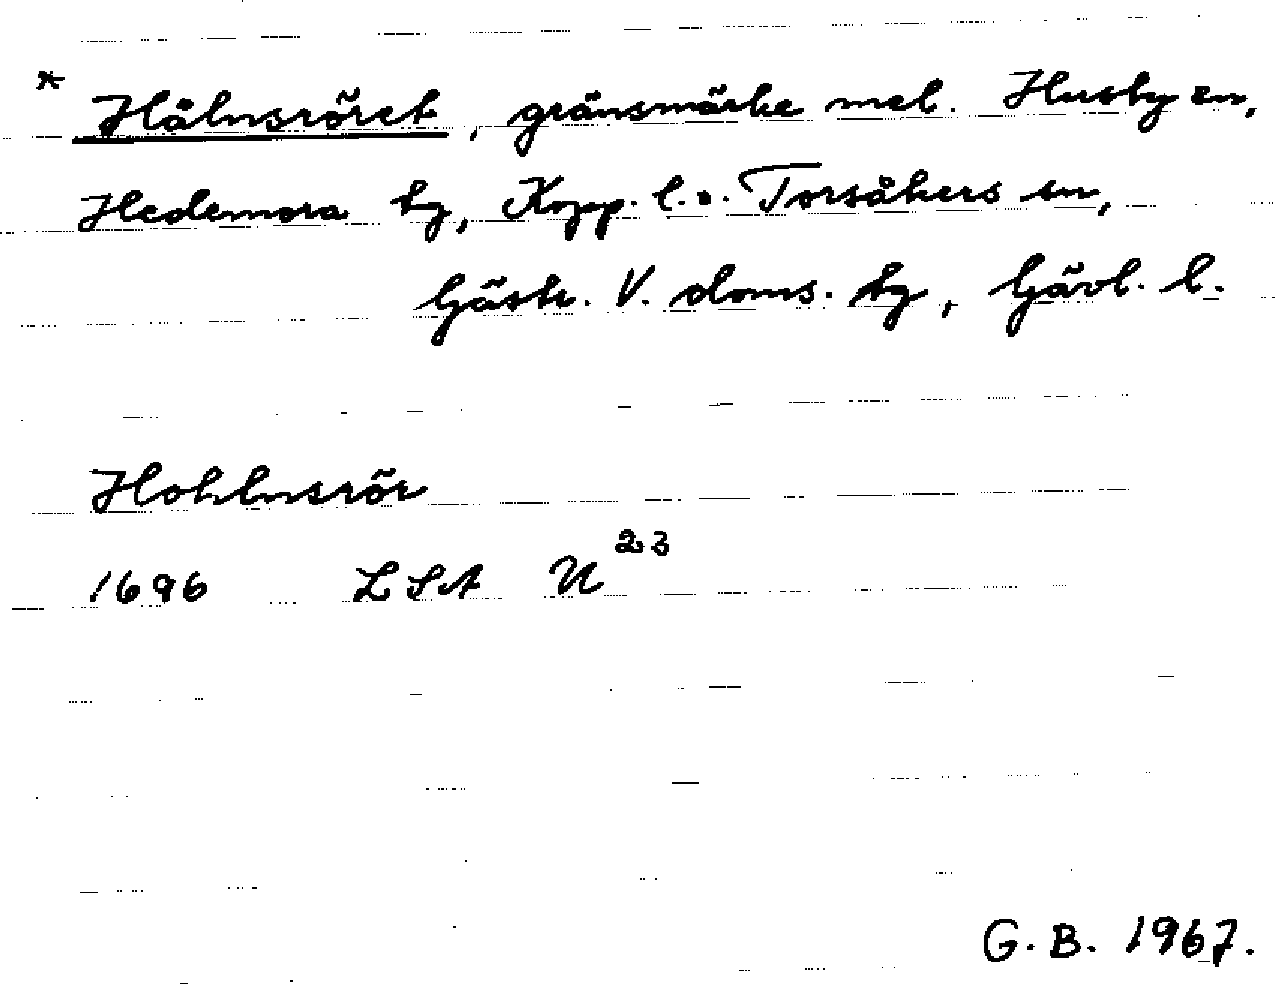 * Hålnsröret, gränsmärke mel. Husby sn,
Hedemora tg, Kopp. l. o. Torsåkers sn,
Gästr. V. doms. tg, Gävl. l.
Hohlnsrör
1696 LSA U 23
G. B. 1967.